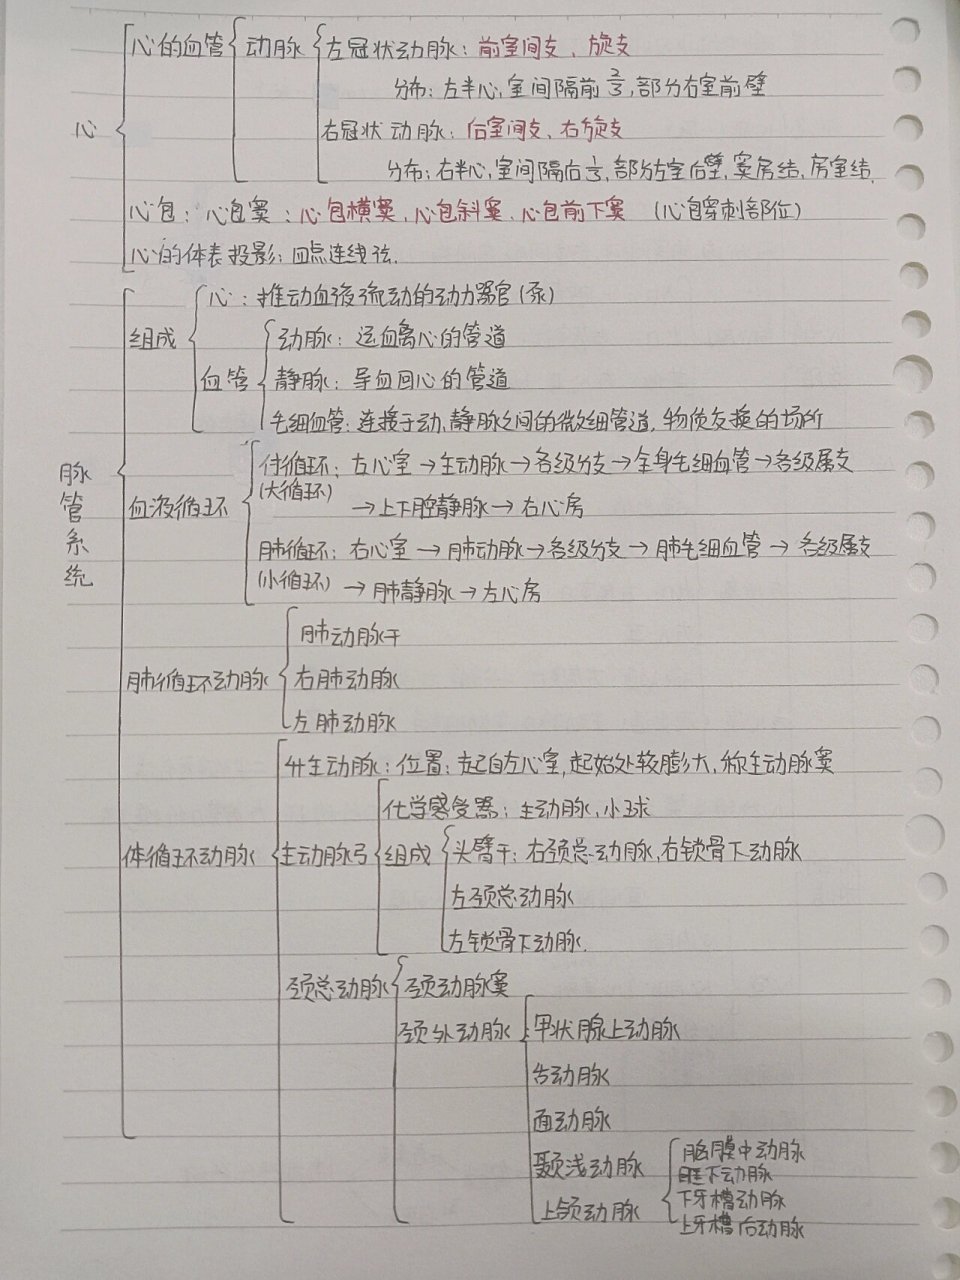 心的血管 动脉 左冠状动脉：前室间支、旋支
分布：左半心,室间隔前2/3,部分右室前壁
心
右冠状动脉：后室间支、右旋支
分布：右半心,室间隔后1/3,部分左室后壁,窦房结,房室结.
心包：心包窦：心包横窦、心包斜窦、心包前下窦 (心包穿刺部位)
心的体表投影：四点连线法.
心：推动血液流动的动力器官(泵)
组成 动脉：运血离心的管道
血管 静脉：导血回心的管道
毛细血管：连接于动、静脉之间的微细管道,物质交换的场所
体循环：左心室→主动脉→各级分支→全身毛细血管→各级属支
(大循环)
脉管系统
血液循环 →上下腔静脉→右心房
肺循环：右心室→肺动脉→各级分支→肺毛细血管→各级属支
(小循环) →肺静脉→左心房
肺动脉干
肺循环动脉 右肺动脉
左肺动脉
升主动脉：位置：起自左心室,起始处较膨大,称主动脉窦
化学感受器：主动脉,小球
体循环动脉 主动脉弓 组成 头臂干：右颈总动脉,右锁骨下动脉
左颈总动脉
左锁骨下动脉.
颈总动脉 颈动脉窦
颈外动脉 甲状腺上动脉
舌动脉
面动脉
颞浅动脉 脑膜中动脉
下动脉
上颌动脉 下牙槽动脉
上牙槽后动脉